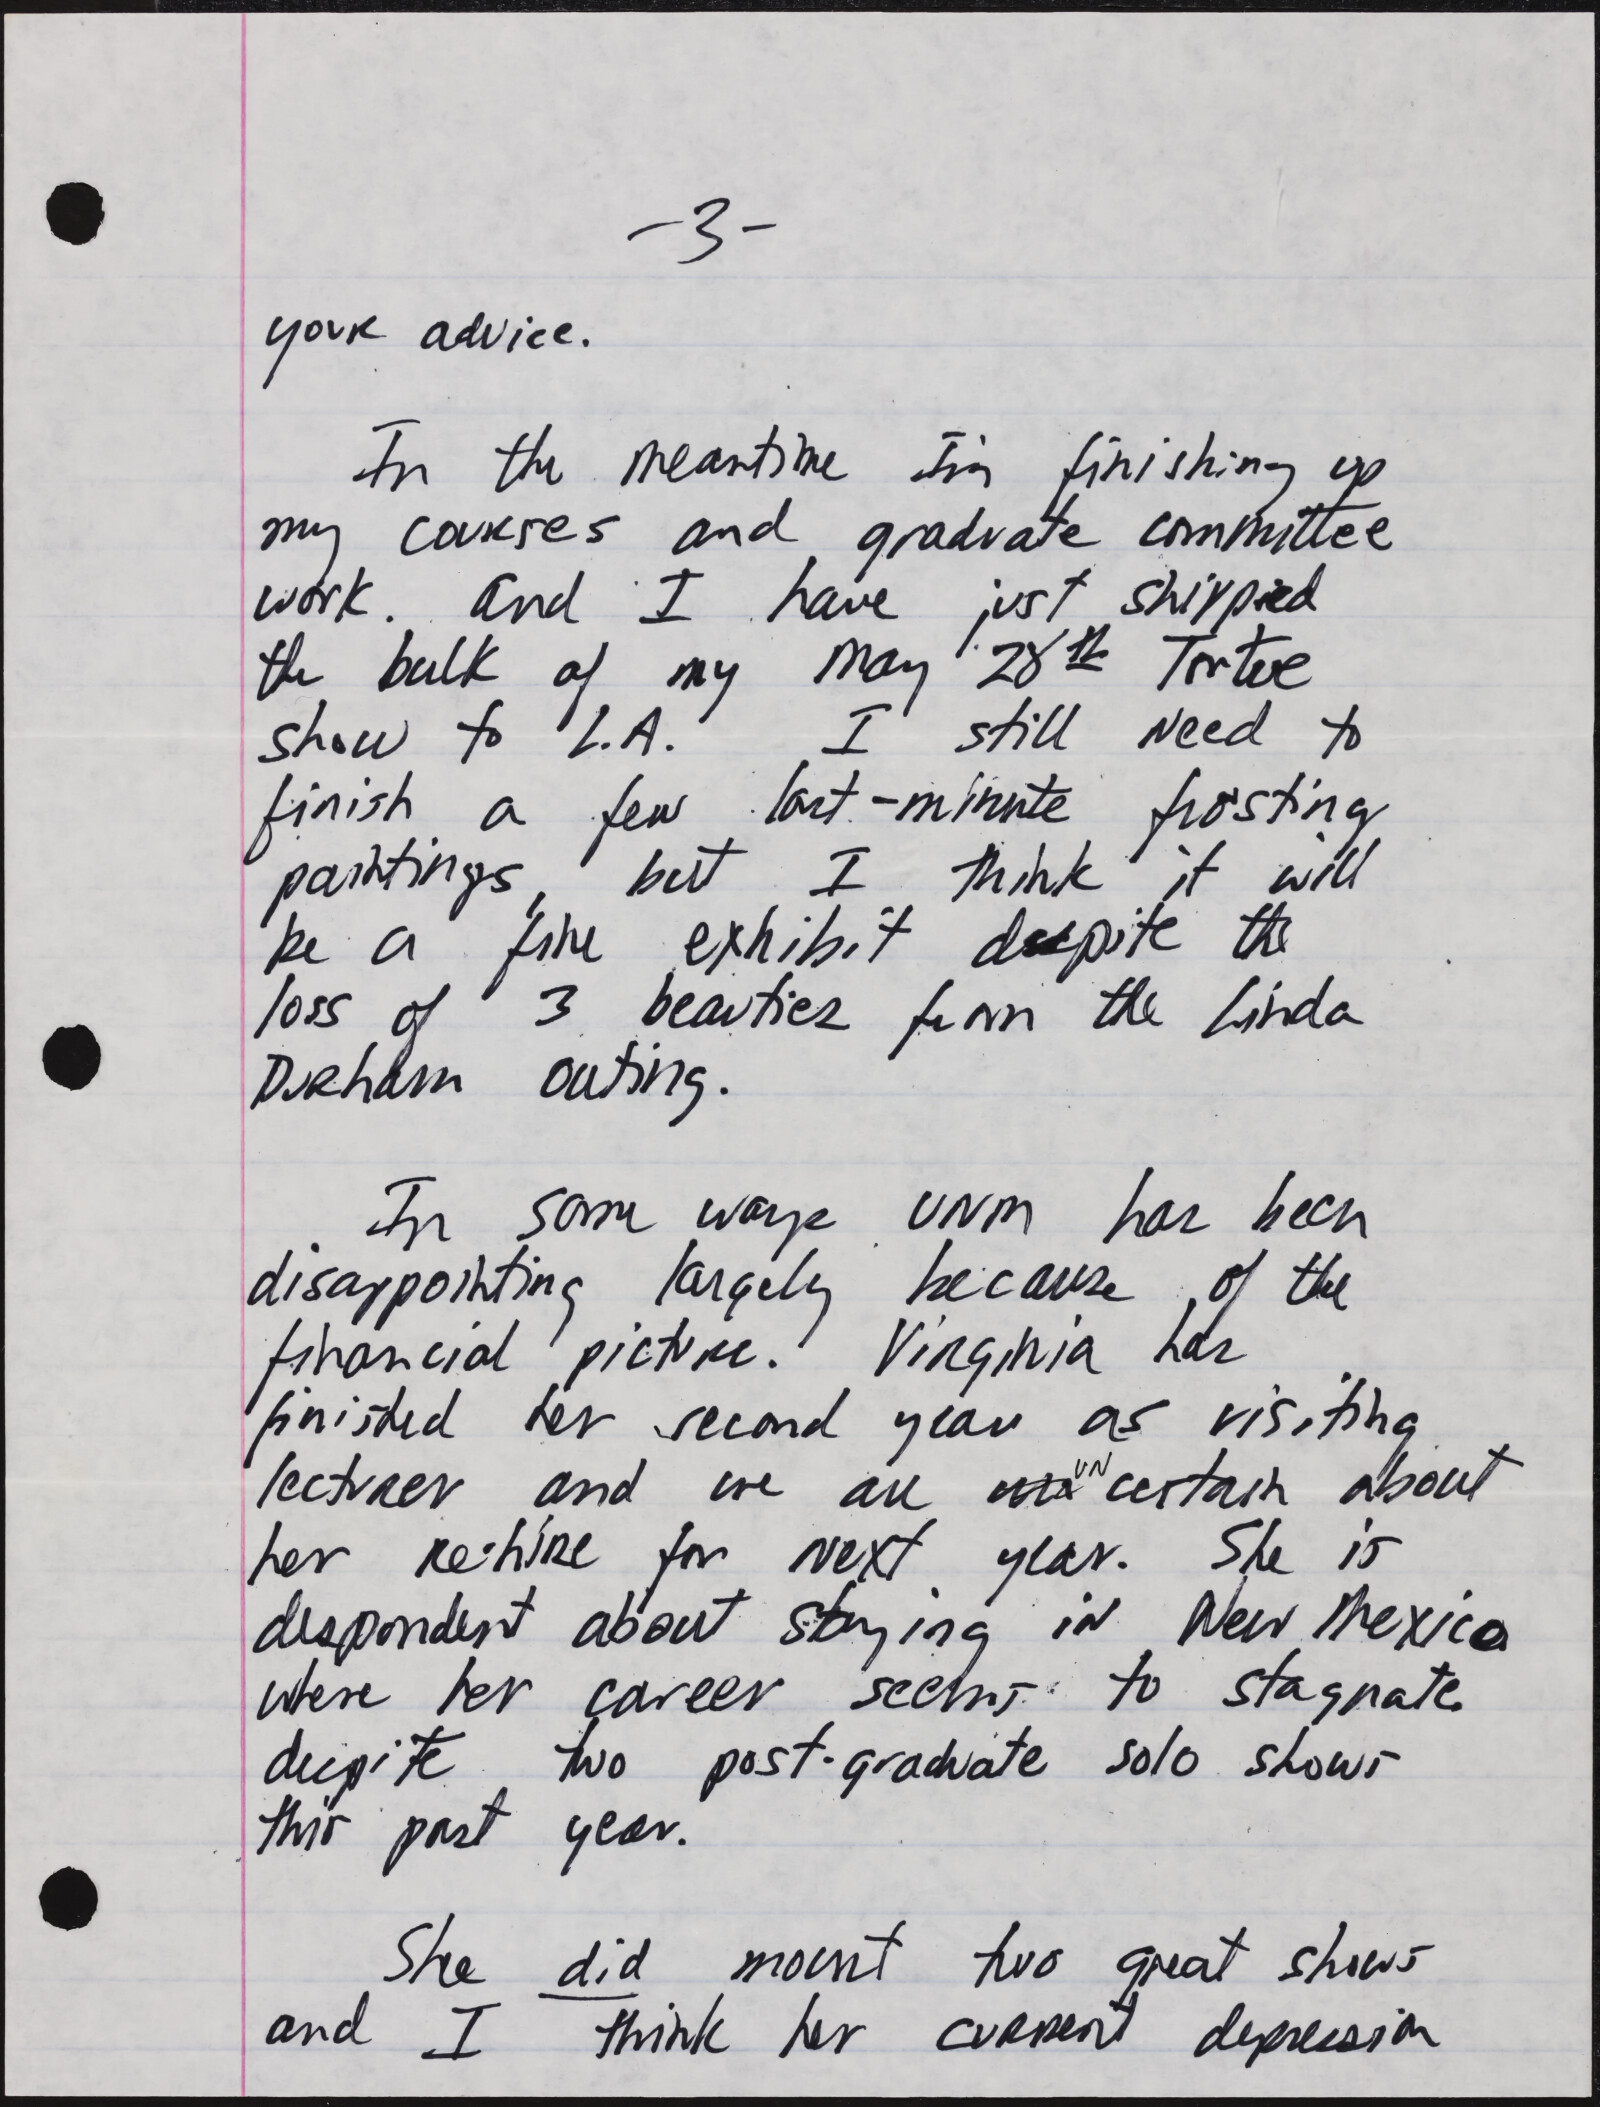 -3-
your advice.
In the meantime I'm finishing up
my courses and graduate committee
work. And I have just shipped
the bulk of my May 28th Tortue
show to L.A. I still need to
finish a few last-minute frosting
paintings, but I think it will
be a fine exhibit despite the
loss of 3 beauties from the Linda
Durham outing.
In some ways UNM has been
disappointing largely because of the
financial picture. Virginia has
finished her second year as visiting
lecturer and we are uncertain about
her re-hire for next year. She is
despondent about staying in New Mexico
where her career seems to stagnate
despite two post-graduate solo shows
this past year.
She did mount two great shows
and I think her current depression